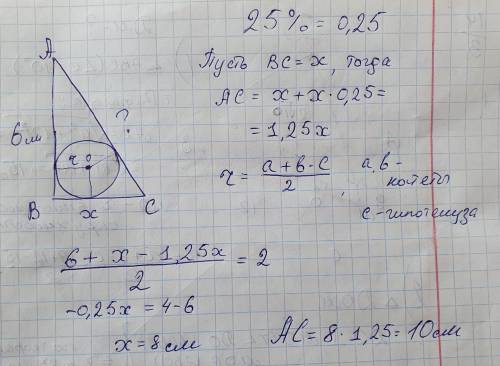 25% = 0,25
Пусть BC = x, тогда
AC = x + x · 0,25 =
= 1,25x
r = (a + b - c) / 2, a, b - катеты
c - гипотенуза
A
6 см
?
r
O
B
x
C
(6 + x - 1,25x) / 2 = 2
-0,25x = 4 - 6
x = 8 см
AC = 8 · 1,25 = 10 см